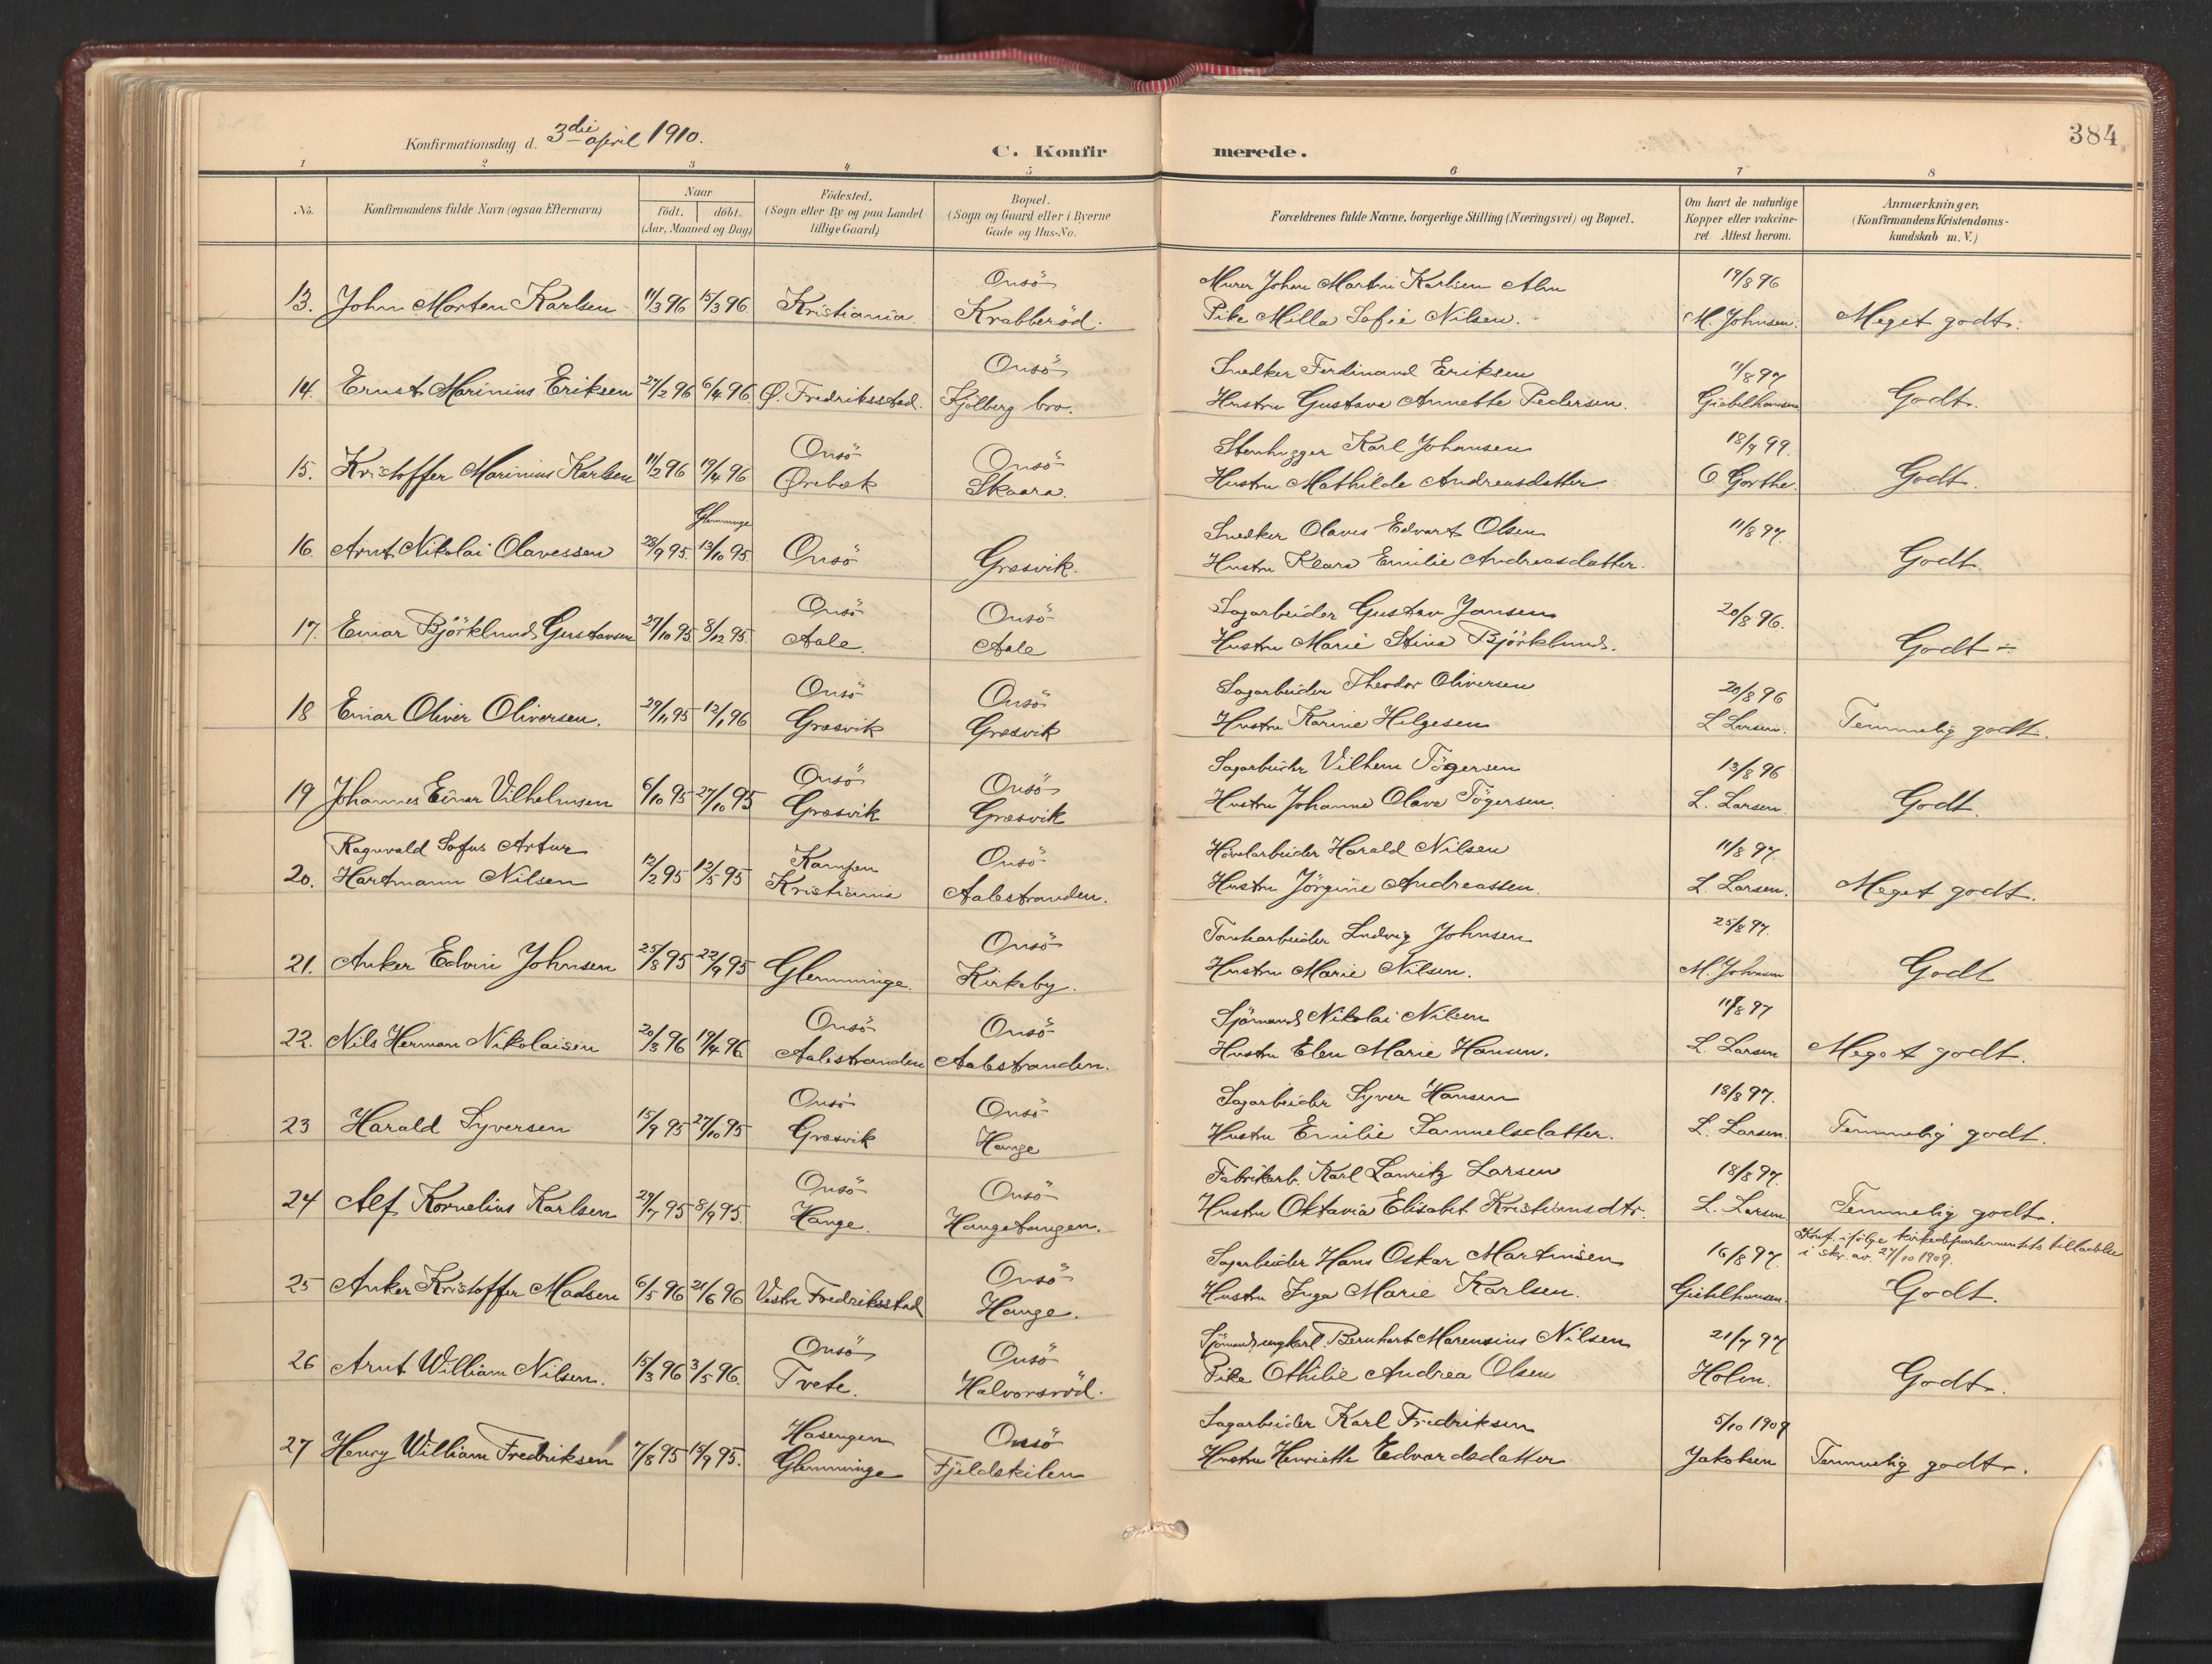 Konfirmationsdag d. 3die april 1910.
C. Konfirmerede.
384
1 2 3 4 5 6 7 8
No.
Konfirmandens fulde Navn (ogsaa Efternavn)
Naar
födt. döbt.
(Aar, Maaned og Dag)
Födested.
(Sogn eller By og paa Landet
tillige Gaard)
Bopæl.
(Sogn og Gaard eller i Byerne
Gade og Hus-No.
Forældrenes fulde Navne, borgerlige Stilling (Næringsvei) og Bopæl.
Om havt de naturlige
Kopper eller vakcine-
ret Attest herom.
Anmærkninger,
(Konfirmandens Kristendoms-
kundskab m. V.)
Onsö Murer Johan Martin Karlsen Alm 19/8 96
13. John Morten Karlsen 11/3 96 15/3 96. Kristiania. Krabberöd. Pike Milla Sofie Nilsen. M. Johnsen. Meget godt.
Onsö Snedker Ferdinand Eriksen 11/8 97
14. Ernst Marinius Eriksen 27/2 96 6/4 96 Ø. Fredriksstad. Kjölberg bro. Hustru Gustava Annette Pedersen. Giebelhausen Godt.
Onsö Onsö Stenhugger Karl Johansen 18/9 99.
15. Kristoffer Marinius Karlsen 11/2 96 19/4 96 Ørebæk Skaara. Hustru Mathilde Andreasdatter O Gorthe. Godt.
Glemminge Snedker Olaves Edvart Olsen 11/8 97.
16. Arnt Nikolai Olavessen 28/9 95 13/10 95. Onsö Græsvik. Hustru Klara Emilie Andreasdatter. Godt.
Onsö Onsö Sagarbeider Gustav Jansen 20/8 96.
17. Einar Björklund Gustavsen 27/10 95. 8/12 95. Aale. Aale Hustru Marie Stina Björklund. Godt ÷
Onsö Onsö Sagarbeider Theodor Oliversen 20/8 96
18 Einar Oliver Oliversen. 29/11 95 12/1 96 Græsvik Græsvik Hustru Karine Helgesen L Larsen. Temmelig godt.
Onsö Onsö Sagarbeider Vilhem Tögersen 13/8 96
19 Johannes Einar Vilhelmsen 6/10 95 27/10 95 Græsvik Græsvik Hustru Johanne Olava Tögersen. L. Larsen. Godt
Ragnvald Sofus Artur Kampen Onsö Hövlarbeider Harald Nilsen 11/8 97.
20. Hartmann Nilsen 12/2 95 12/5 95 Kristiania Aalestranden. Hustru Jörgine Andreassen. L. Larsen. Meget godt.
Onsö Tomtarbeider Ludvig Johnsen 25/8 97.
21. Anker Edvin Johnsen 25/8 95 22/9 95 Glemminge. Kirkeby. Hustru Marie Nilsen. M. Johnsen Godt
Onsö Onsö Sjömand Nikolai Nilsen 11/8 97
22. Nils Herman Nikolaisen 20/3 96 19/4 96 Aalestranden Aalestranden. Hustru Elen Marie Hansen. L. Larsen Meget godt.
Onsö Onsö Sagarbeider Syver Hansen 18/8 97.
23 Harald Syversen 15/9 95 27/10 95 Græsvik Hauge Hustru Emilie Samuelsdatter. L. Larsen. Temmelig godt.
Onsö Onsö Fabrikarb. Karl Lauritz Larsen 18/8 97.
24 Alf Kornelius Karlsen 29/7 95 8/9 95. Hauge. Haugetangen. Hustru Oktavia Elisabet Kristiansdtr. L. Larsen Temmelig godt.
Konf. ifölge kirkedepartementets tilladelse
i skr. av. 27/10 1909.
Onsö Sagarbeider Hans Oskar Martinsen 16/8 97.
25 Anker Kristoffer Madsen 6/5 96 21/6 96 Vestre Fredriksstad Hauge. Hustru Inga Marie Karlsen. Giehlhausen. Godt.
Onsö Onsö Sjömand, ungkarl. Bernhart Marensius Nilsen 21/7 97
26 Arnt William Nilsen. 15/3 96 3/5 96. Tvete. Halvorsröd. Pike Othilie Andrea Olsen Holm. Godt.
Hasengen Onsö Sagarbeider Karl Fredriksen 5/10 1909
27 Henry William Fredriksen 7/8 95 15/9 95. Glemminge Fjeldskilen Hustru Henriette Edvardsdatter Jakobsen Temmelig godt.